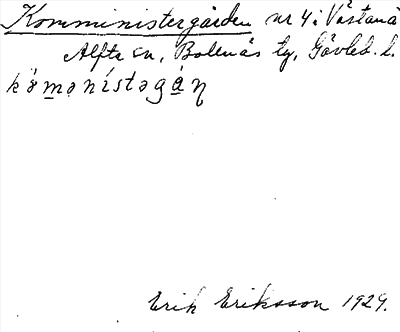 Komministergården nr 4 i Västanå
Alfta sn, Bolenäs tg, Gävleb. l.
kɷ̀mənístəgán
Erik Eriksson 1929.